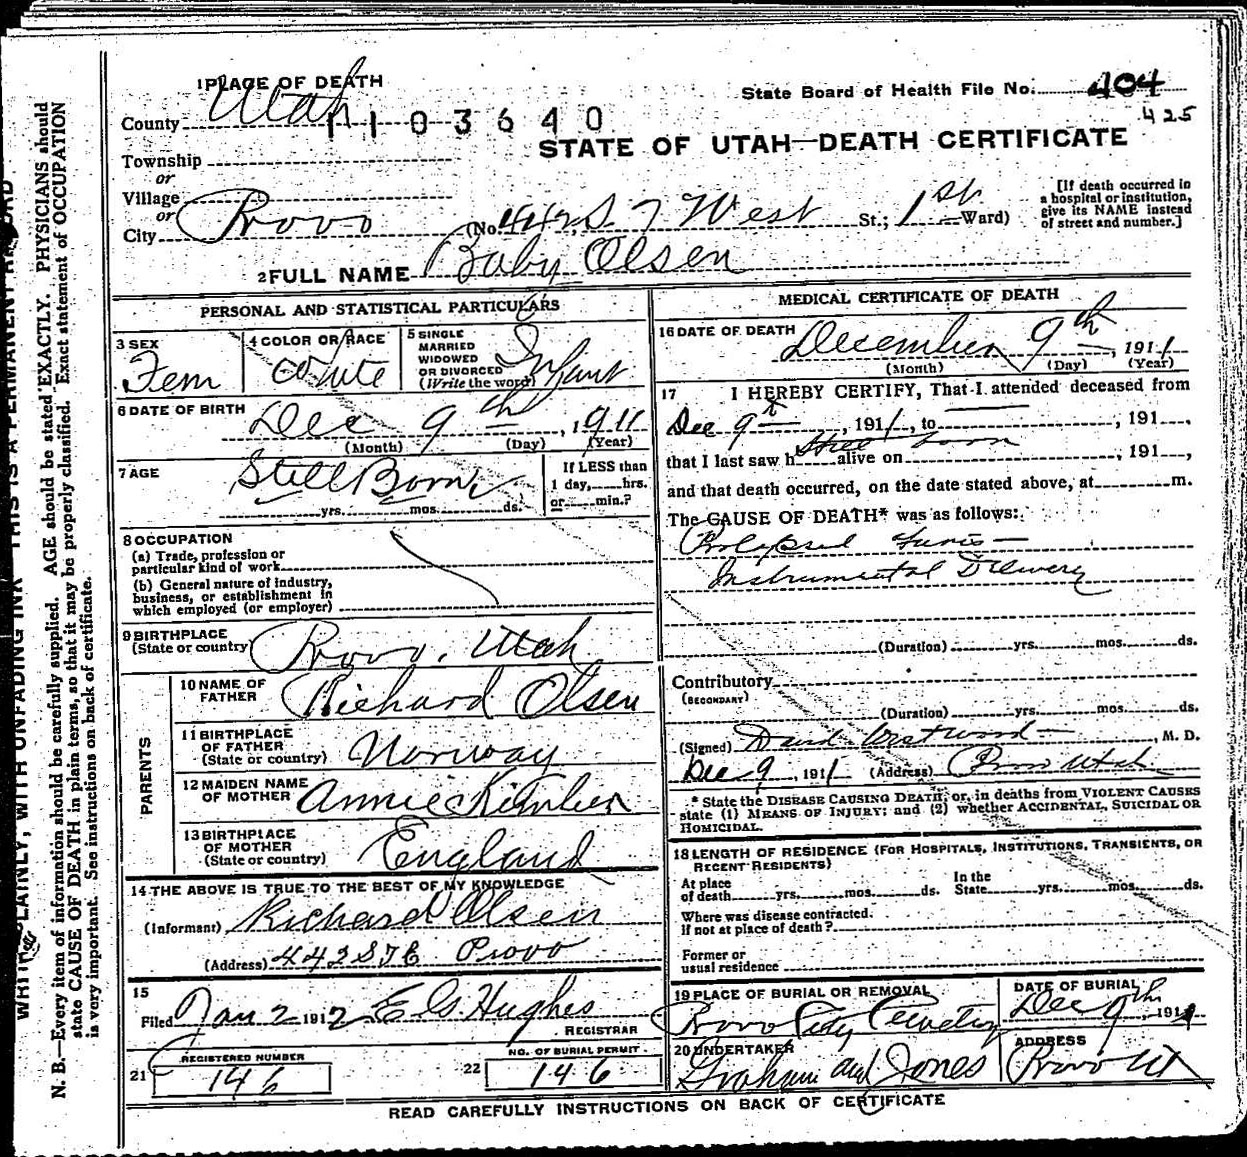 1 PLACE OF DEATH
State Board of Health File No. 404
425
County Utah
1103640
STATE OF UTAH—DEATH CERTIFICATE
Township
or
Village
or
City Provo (No. 442 S. 7 West St.; 1st Ward)
[If death occurred in
a hospital or institution,
give its NAME instead
of street and number.]
2 FULL NAME Baby Olsen
PERSONAL AND STATISTICAL PARTICULARS
3 SEX
Fem
4 COLOR OR RACE
White
5 SINGLE
MARRIED
WIDOWED
OR DIVORCED
(Write the word)
Infant
6 DATE OF BIRTH
Dec 9th, 1911
(Month) (Day) (Year)
7 AGE
Still Born
yrs. mos. ds.
If LESS than
1 day, hrs.
or min.?
8 OCCUPATION
(a) Trade, profession or
particular kind of work
(b) General nature of industry,
business, or establishment in
which employed (or employer)
9 BIRTHPLACE
(State or country) Provo, Utah
PARENTS
10 NAME OF
FATHER Richard Olsen
11 BIRTHPLACE
OF FATHER
(State or country) Norway
12 MAIDEN NAME
OF MOTHER Annie
13 BIRTHPLACE
OF MOTHER
(State or country) England
14 THE ABOVE IS TRUE TO THE BEST OF MY KNOWLEDGE
(Informant) Richard Olsen
(Address) Provo
15
Filed Jan 2 1912 E G Hughes
REGISTRAR
21 REGISTERED NUMBER
146
22 NO. OF BURIAL PERMIT
146
MEDICAL CERTIFICATE OF DEATH
16 DATE OF DEATH
December 9th, 1911
(Month) (Day) (Year)
17 I HEREBY CERTIFY, That I attended deceased from
Dec 9th, 1911, to , 191 ,
that I last saw h alive on Still born , 191 ,
and that death occurred, on the date stated above, at m.
The CAUSE OF DEATH* was as follows:
Prolapsed Funis —
Instrumental Delivery
(Duration) yrs. mos. ds.
Contributory
(SECONDARY)
(Duration) yrs. mos. ds.
(Signed) David Westwood, M. D.
Dec 9, 1911 (Address) Provo Utah
* State the DISEASE CAUSING DEATH, or, in deaths from VIOLENT CAUSES
state (1) MEANS OF INJURY; and (2) whether ACCIDENTAL, SUICIDAL OR
HOMICIDAL.
18 LENGTH OF RESIDENCE (FOR HOSPITALS, INSTITUTIONS, TRANSIENTS, OR
RECENT RESIDENTS)
At place
of death yrs. mos. ds.
In the
State yrs. mos. ds.
Where was disease contracted.
if not at place of death?
Former or
usual residence
19 PLACE OF BURIAL OR REMOVAL
Provo City Cemetery
DATE OF BURIAL
Dec 9th, 1911
20 UNDERTAKER
Graham and Jones
ADDRESS
Provo Ut
READ CAREFULLY INSTRUCTIONS ON BACK OF CERTIFICATE
WRITE PLAINLY, WITH UNFADING INK THIS IS A PERMANENT RECORD
N. B.—Every item of information should be carefully supplied. AGE should be stated EXACTLY. PHYSICIANS should
state CAUSE OF DEATH in plain terms, so that it may be properly classified. Exact statement of OCCUPATION
is very important. See instructions on back of certificate.